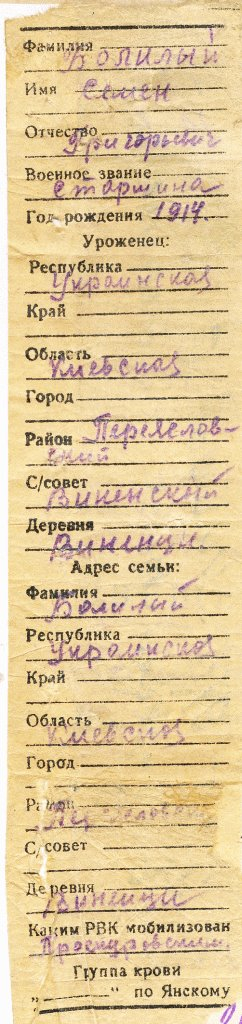 Фамилия Волилый
Имя Семен
Отчество Григорьевич
Военное звание
Старшина
Год рождения 1917.
Уроженец:
Республика
Украинская
Край
Область
Киевская
Город
Район Переяслов-
ский
С/совет
Виненский
Деревня
Виненци.
Адрес семьи:
Фамилия
Волилый
Республика
Украинская
Край
Область
Киевская
Город
Район
Переяславский
С/совет
Деревня
Виненци
Каким РВК мобилизован
Проскуровским.
Группа крови
„ " по Янскому